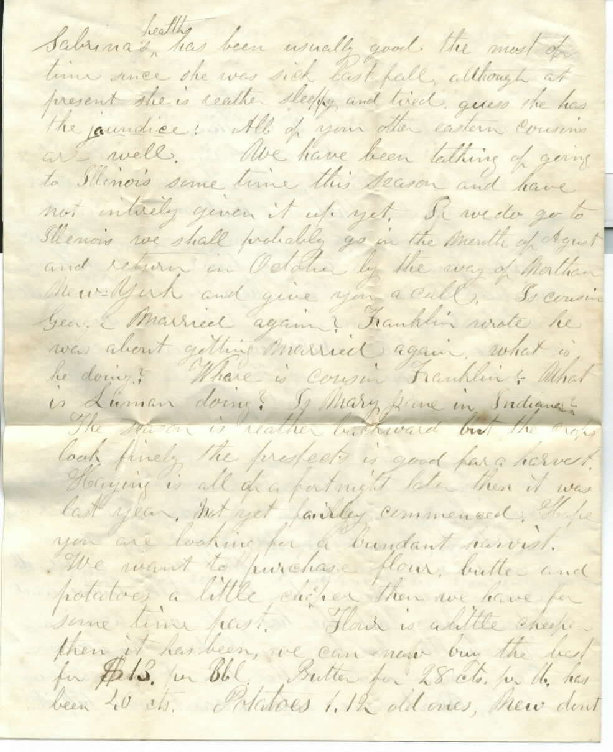 Sabrina's health has been usually good the most of
time since she was sick last fall, although at
present she is reather sleepy and tired guess she has
the jaundice! All of your other eastern cousins
are well. We have been talking of going
to Illinois some time this season and have
not intirely given it up yet, If we do go to
Illinois we shall probably go in the Month of Agust
and return in October by the way of Northern
New York and give you a call. Is cousin
Geo. Married again? Franklin wrote he
was about getting Married again. what is
he doing? Whare is cousin Franklin? What
is Luman doing? Is Mary Jane in Indiana?
The season is reather backward but the crops
look finely the prospects is good for a harvest.
Haying is all of a fortnight later then it was
last year, Not yet fairley commenced. Hope
you are looking for a bundant harvist.
We want to purchase flour, butter and
potatoes a little cheper then we have for
some time past. Flour is a little cheeper
then it has been, we can now buy the best
for $13. per Bbl. Butter for 28 cts. per lb. has
been 40 cts. Potatoes 1.12 old ones, New dont